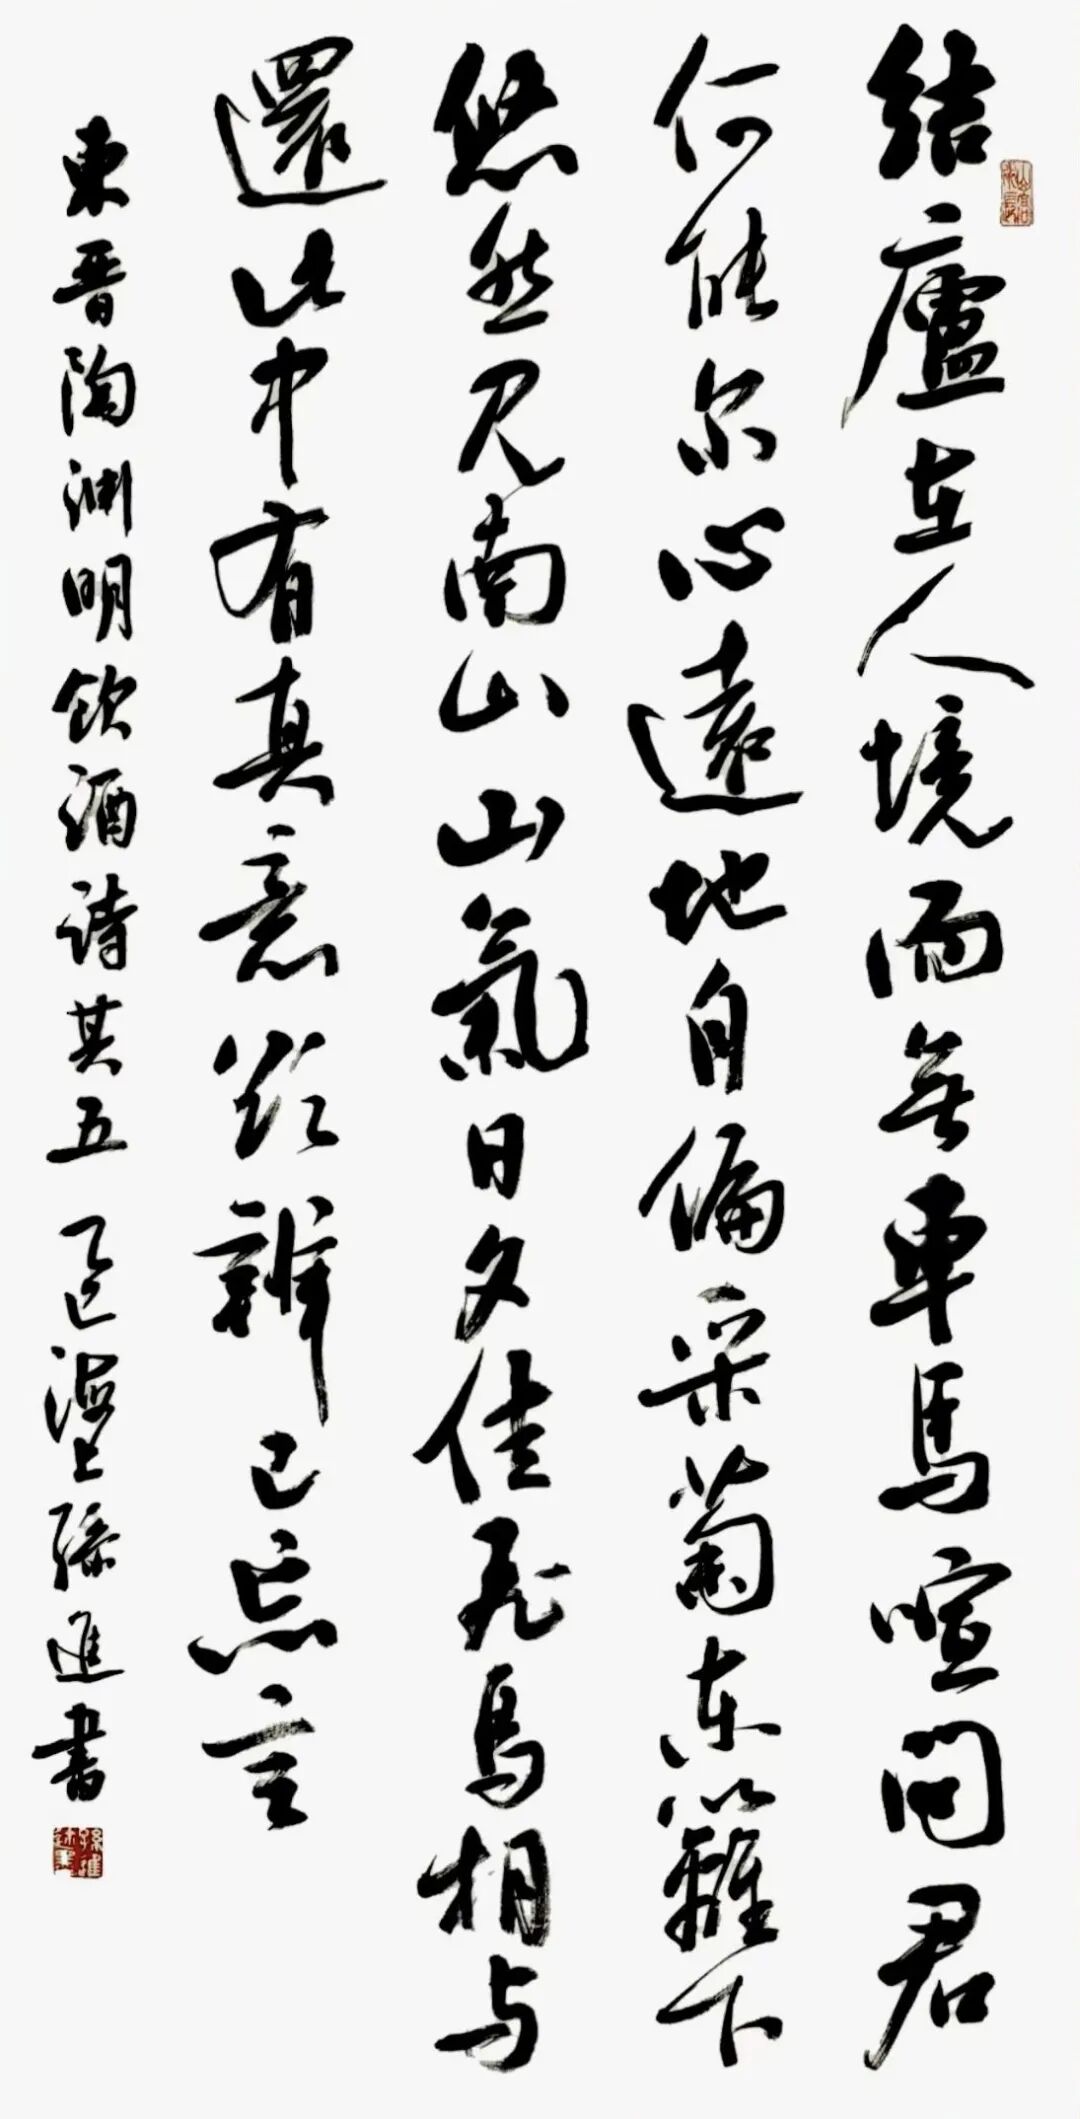 山高水長
結廬在人境而無車馬喧問君
何能尔心遠地自偏采菊东籬下
悠然見南山山氣日夕佳飛鳥相与
還此中有真意欲辨已忘言
東晋陶渊明飲酒詩其五 乙巳海上孫進書